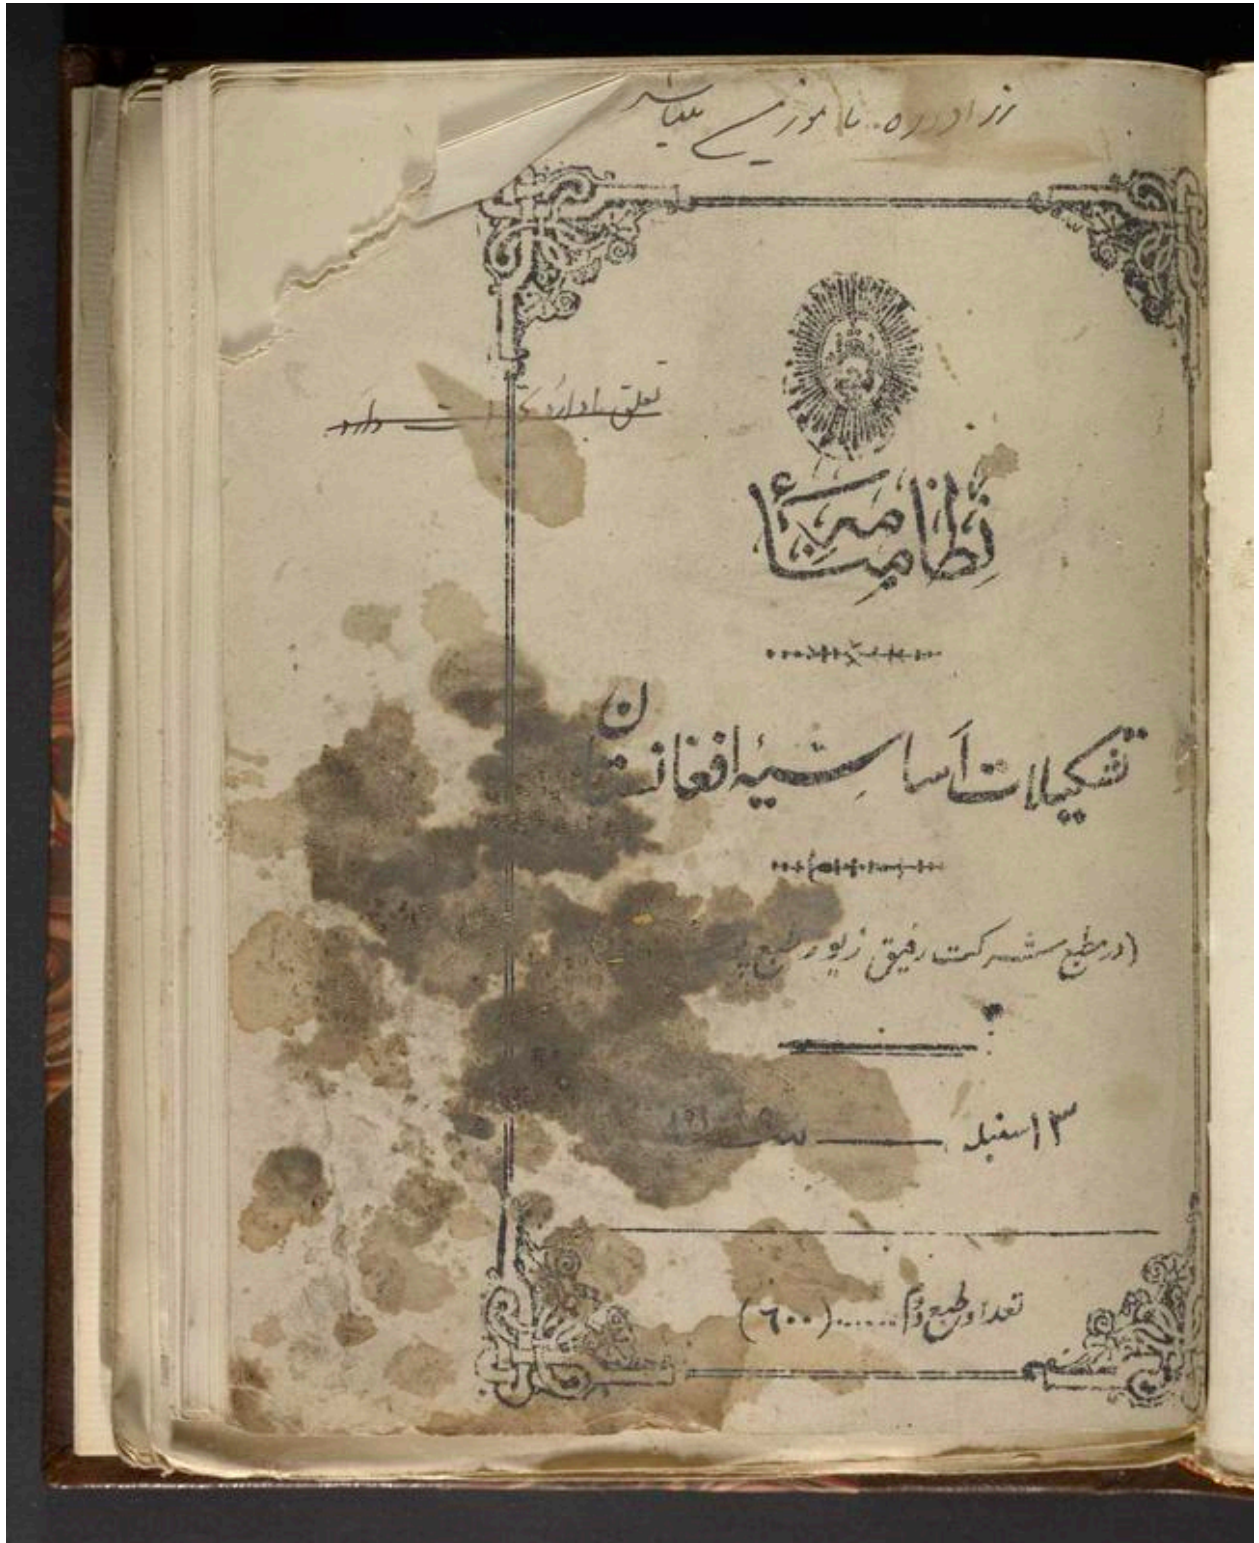 تعلق اداره دارد
نظامنامهٔ
تشکیلات اساسیهٔ افغانستان
(در مطبع شرکت رفیق زیور طبع
۱۳ سنبله سنه
تعداد طبع دوم ...... (٦٠٠)